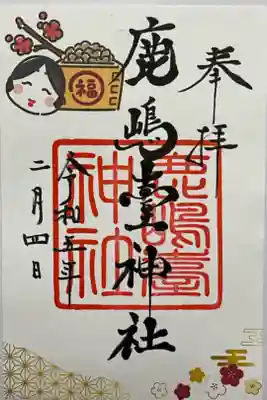 奉拝
鹿嶋臺神社
鹿嶋臺
神社
令和五年
二月四日
福